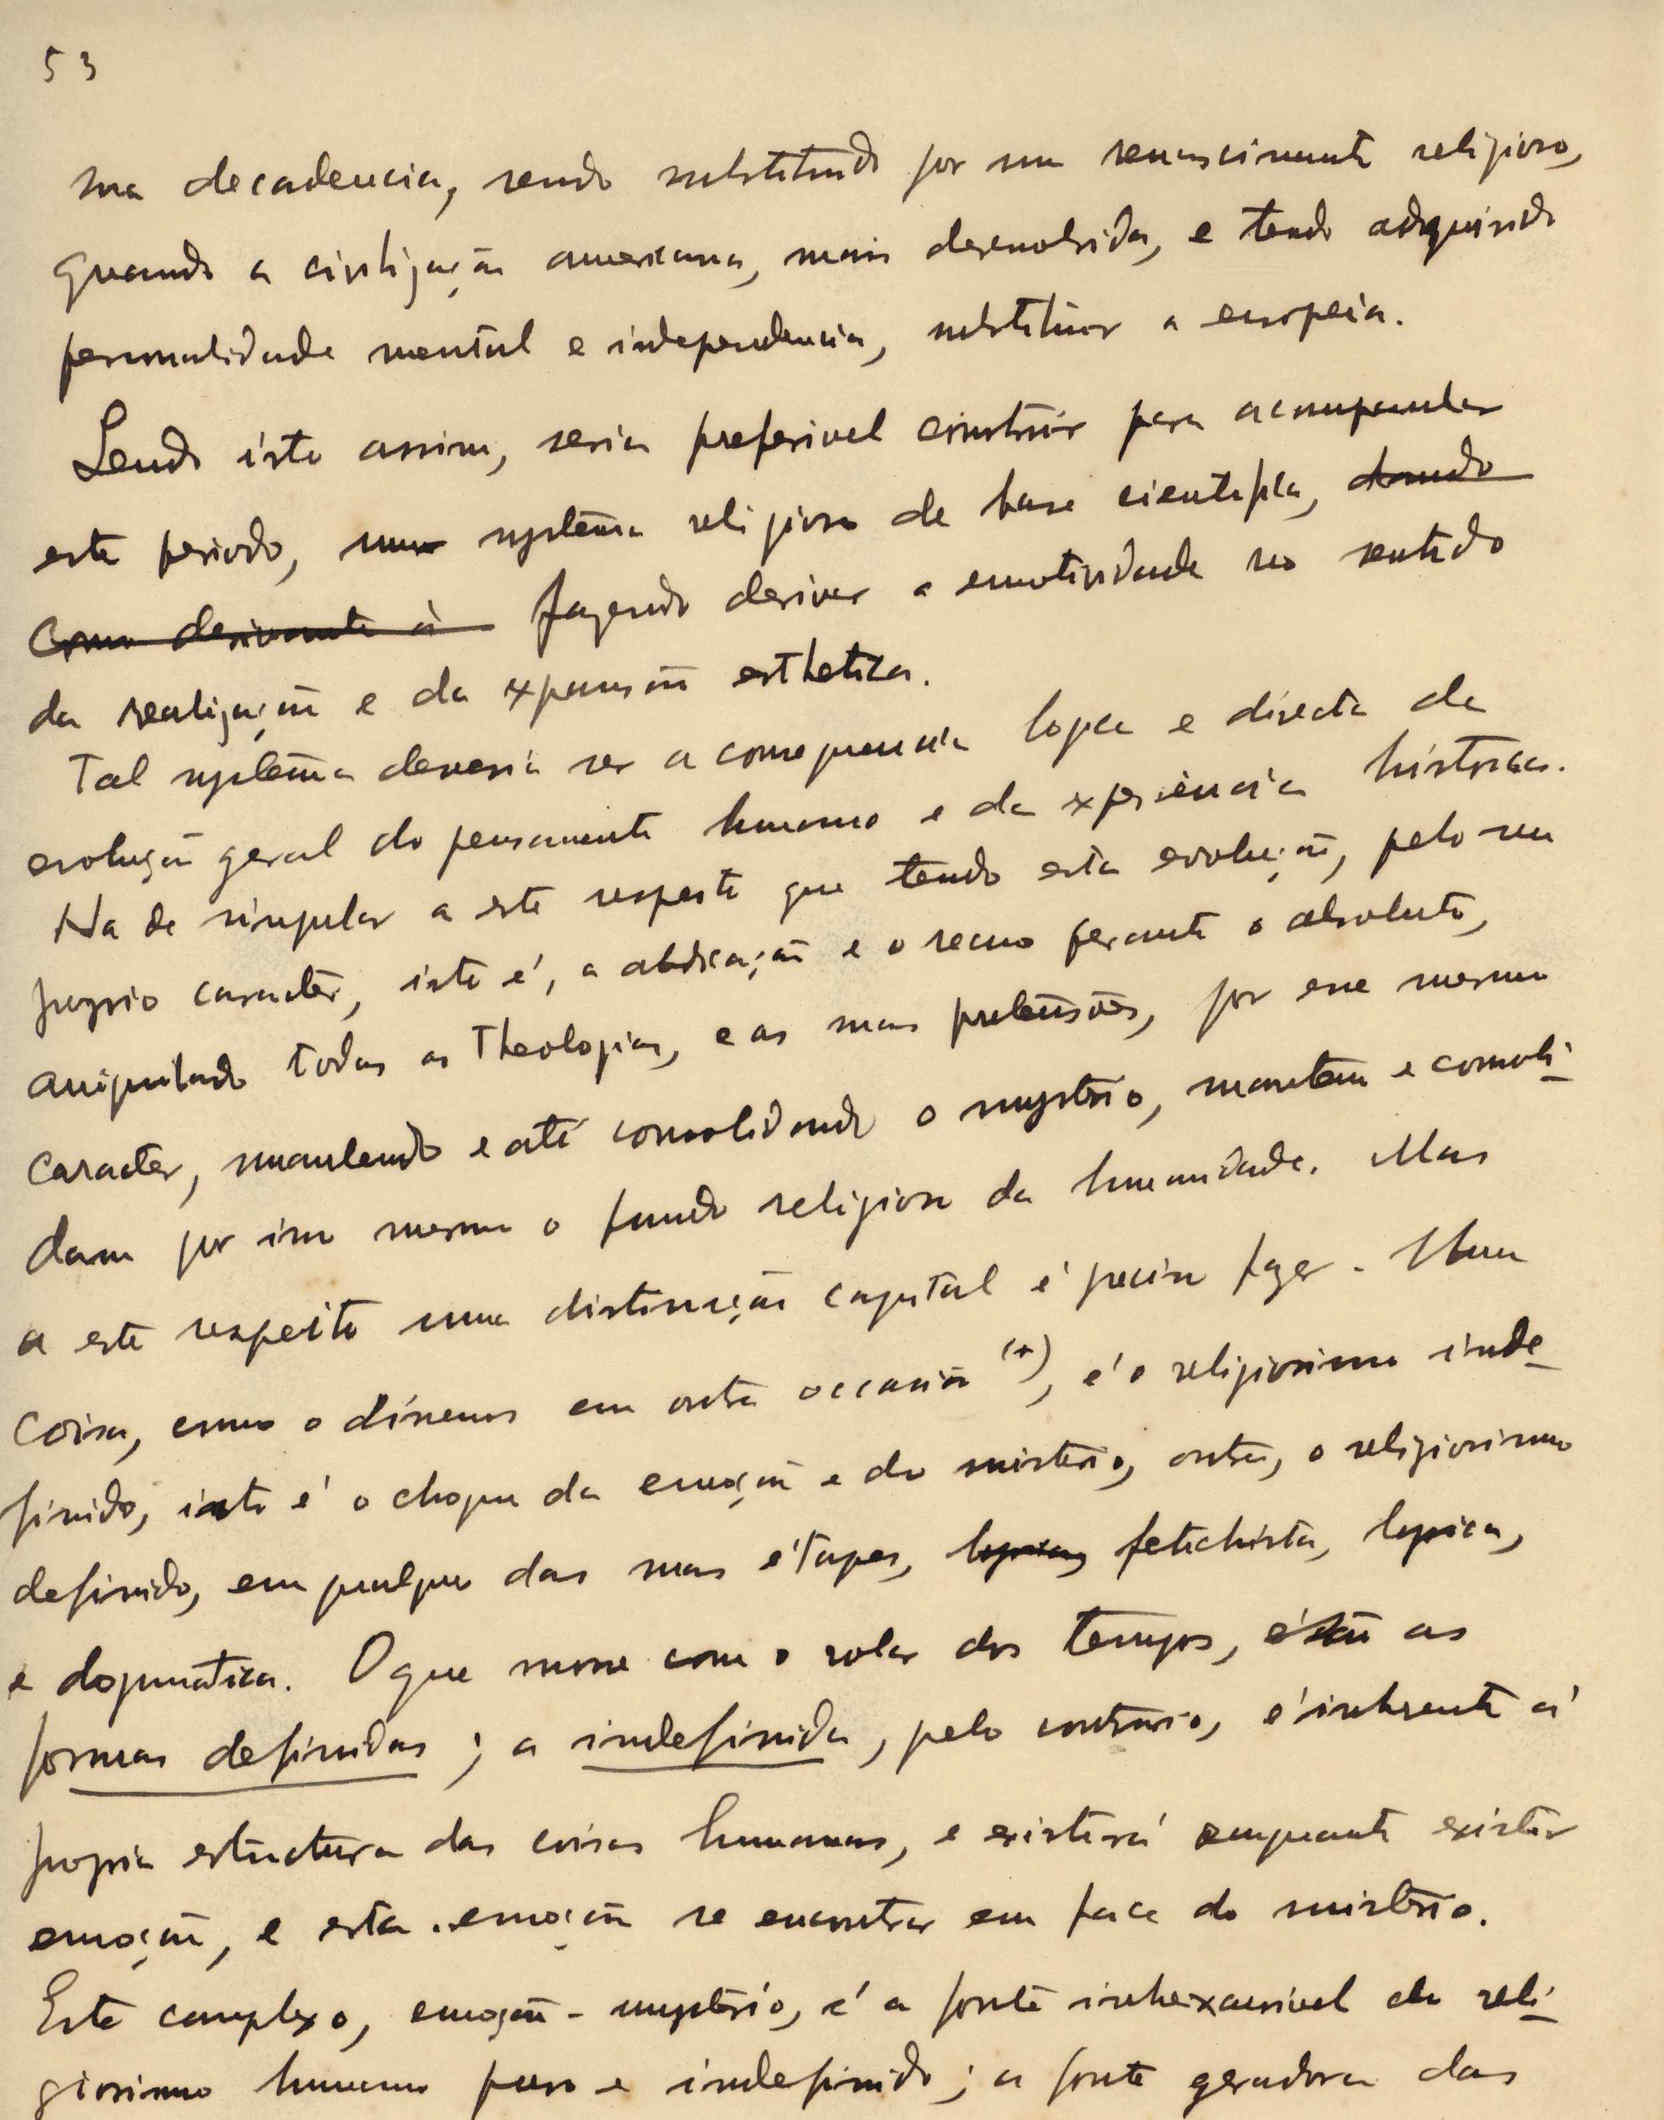 53
sua decadencia, sendo substituido por um renascimento religioso,
quando a civilização americana, mais desenvolvida, e tendo adquirido
personalidade mental e independencia, substituir a europeia.
Sendo isto assim, seria preferivel construir para acompanhar
este periodo, um systema religioso de base cientifica, dando
como derivante á fazendo derivar a emotividade no sentido
da realização e da expansão esthetica.
Tal systema deveria ser a consequencia logica e directa da
evolução geral do pensamento humano e da experiencia historica.
Ha de singular a este respeito que tendo esta evolução, pelo seu
proprio caracter, isto é, a abdicação e o recuo perante o absoluto,
aniquilado todas as Theologias, e as suas pretensões, por esse mesmo
caracter, mantendo e até consolidando o mysterio, mantem e consoli-
dam por isso mesmo o fundo religioso da humanidade. Mas
a este respeito uma distincção capital é preciso fazer. Uma
coisa, como o dissemos em outra occasião (*), é o religiosismo inde-
finido, isto é o choque da emoção e do misterio, outra, o religiosismo
definido, em qualquer das suas étapes, logica, fetichista, logica,
e dogmatica. O que morre com o rolar dos tempos, são as
formas definidas; a indefinida, pelo contrario, é inherente á
propria estructura das coisas humanas, e existirá emquanto existir
emoção, e esta emoção se encontrar em face do misterio.
Este complexo, emoção-mysterio, é a fonte inhexaurivel do reli-
giosismo humano puro e indefinido; a fonte geradora das